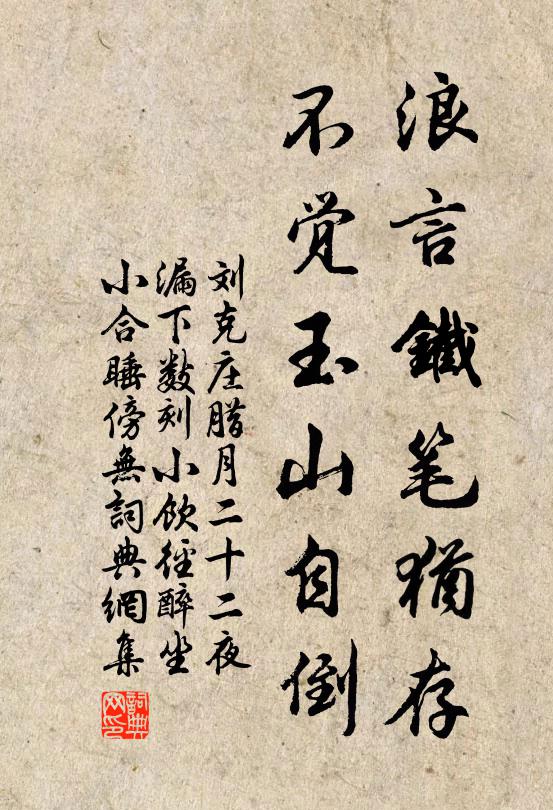 浪言鐵笔猶存
不觉玉山自倒
刘克庄腊月二十二夜
漏下数刻小飲径醉坐
小合睡傍無詞典網集
詞典网印